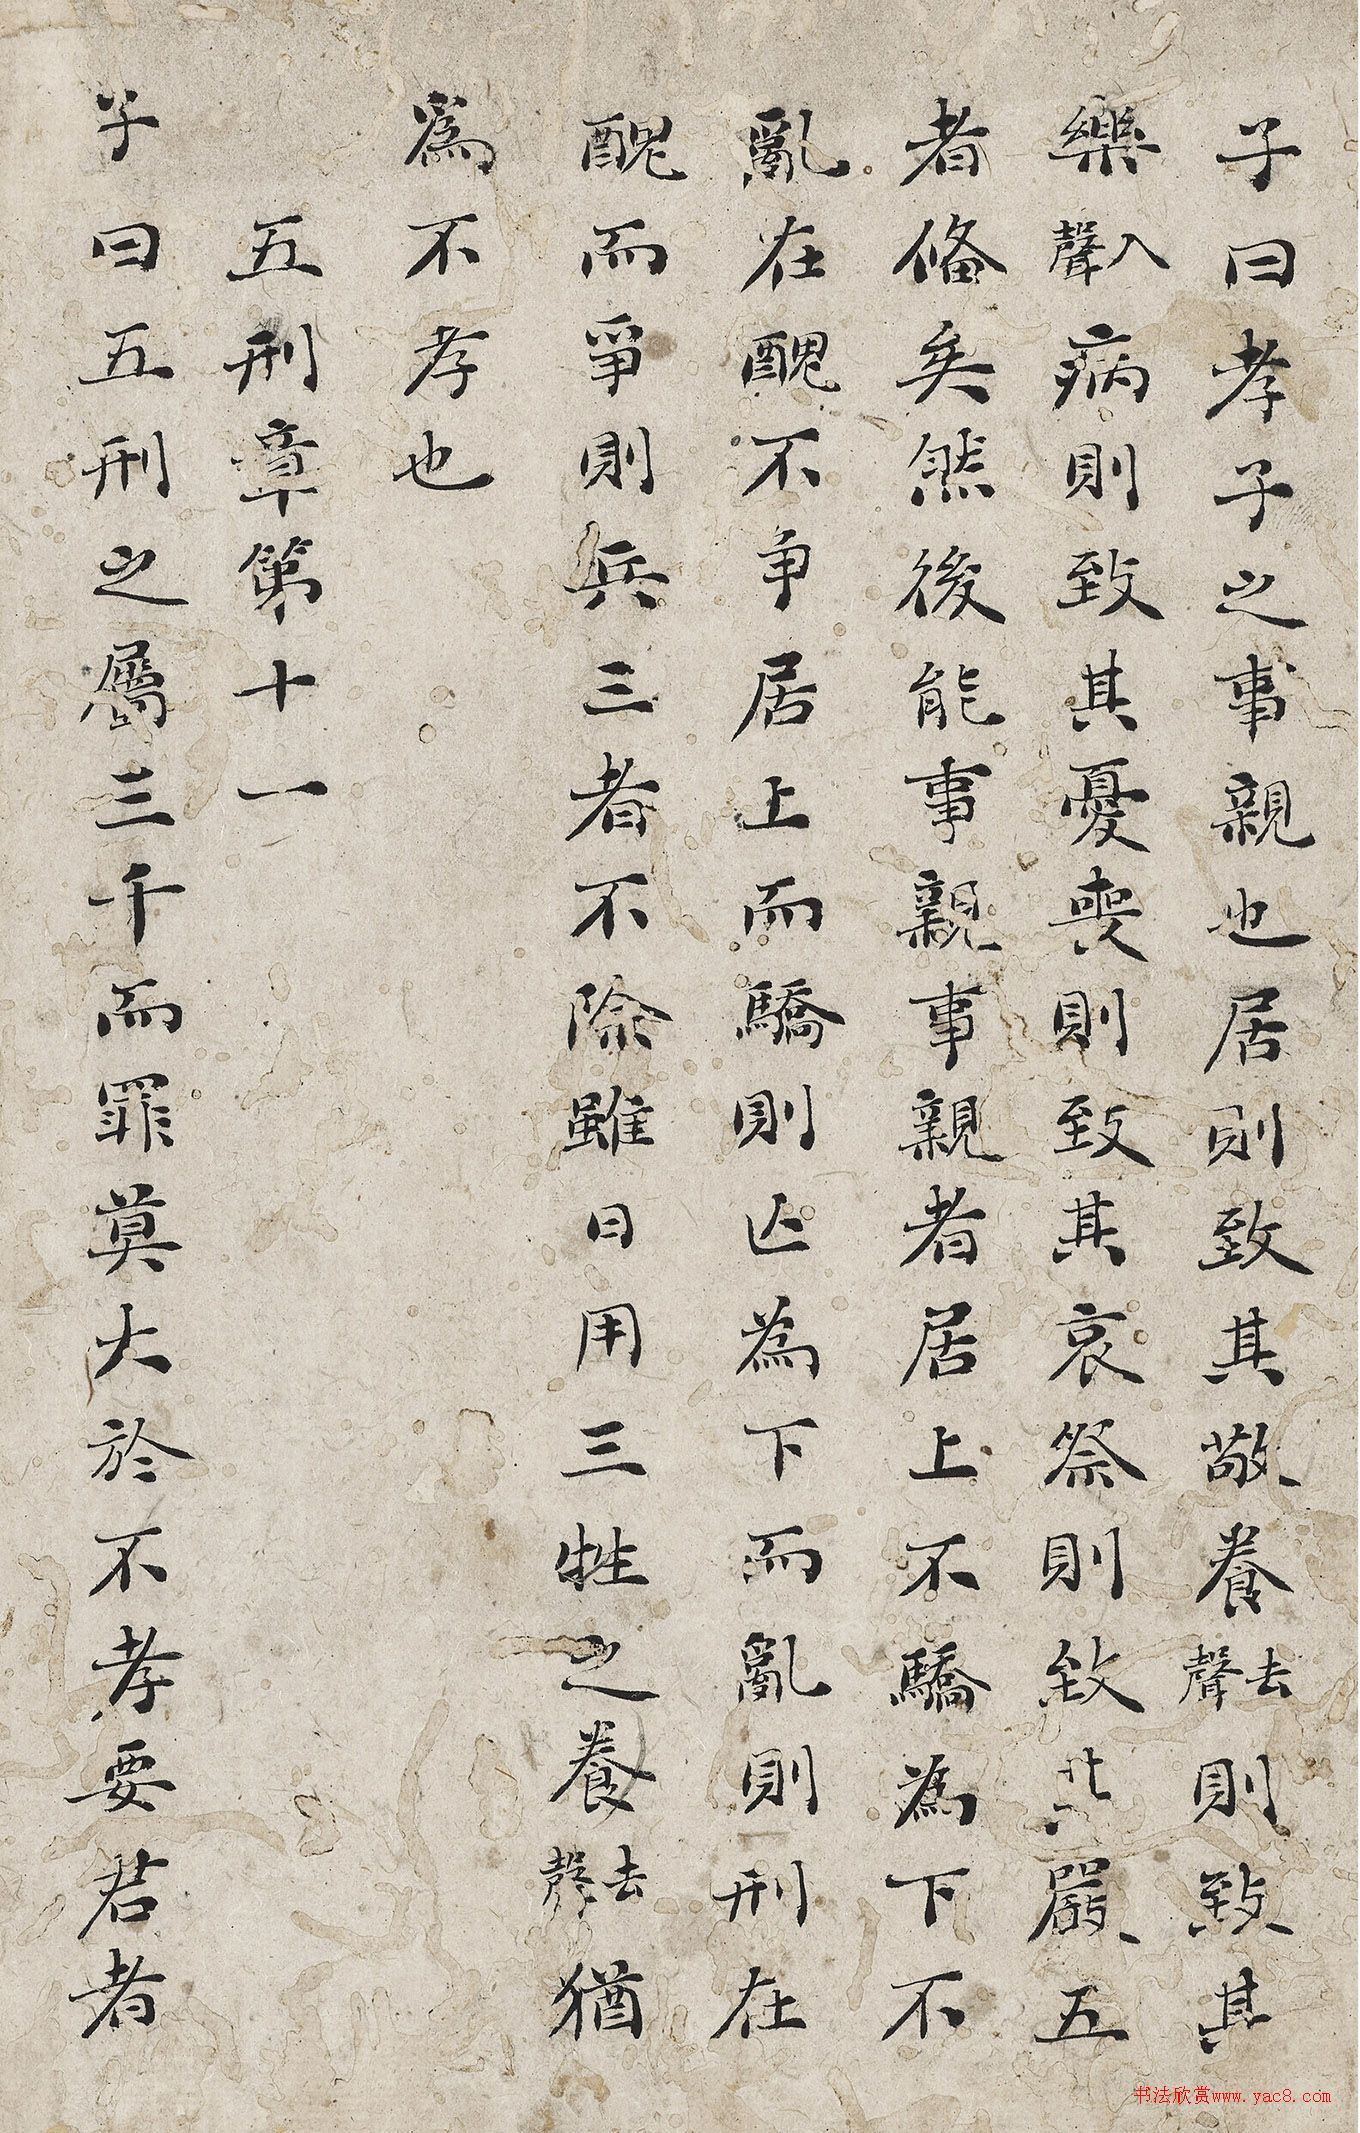 子曰孝子之事親也居則致其敬養去聲則致其
樂入聲病則致其憂喪則致其哀祭則致其嚴五
者俻矣然後能事親事親者居上不驕為下不
亂在醜不争居上而驕則亾為下而亂則刑在
醜而爭則兵三者不除雖日用三牲之養去聲猶
為不孝也
五刑章第十一
子曰五刑之屬三千而罪莫大於不孝要君者
书法欣赏www.yac8.com